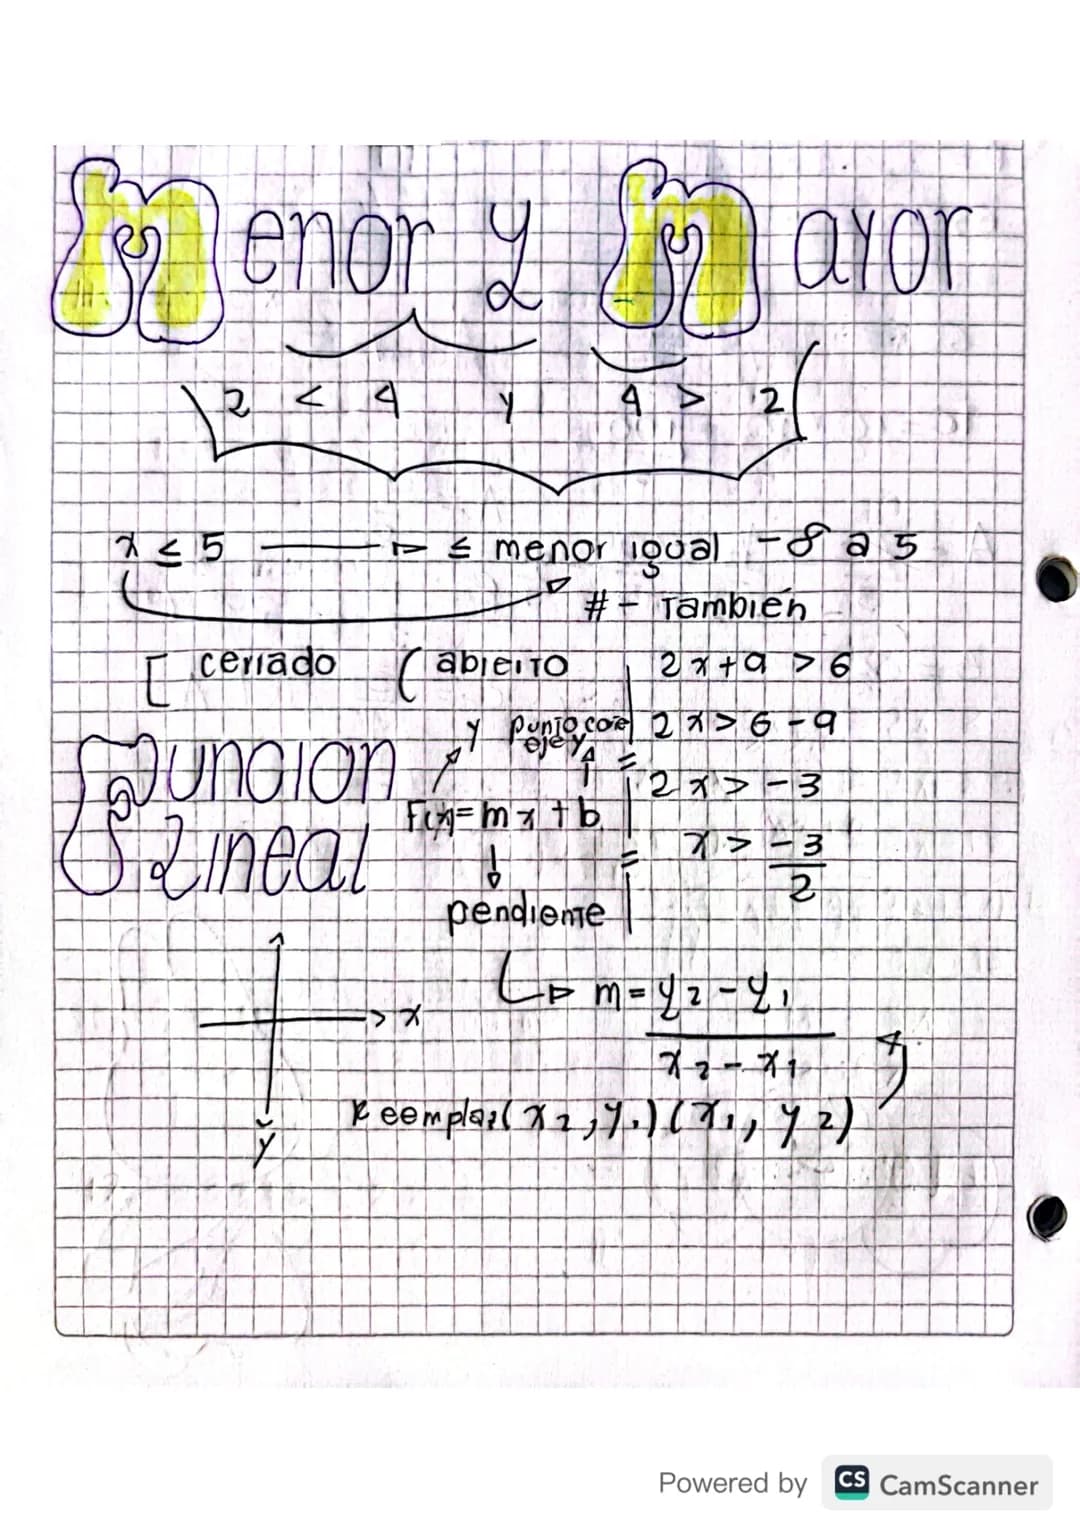 Menor y Mayor
2 < 4 y 4 > 2
x ≤ 5 → ≤ menor igual -8 a 5
# - También
[ cerrado ( abierto
2x+9 > 6
2x > 6 - 9
2x > -3
x > -3/2
Función
Lineal
y punto corte
eje y
F(x)= mx + b
pendiente
m = y2 - y1
x2 - x1
x
y
Reemplaz( x2, y1) ( x1, y2)
Powered by CS CamScanner